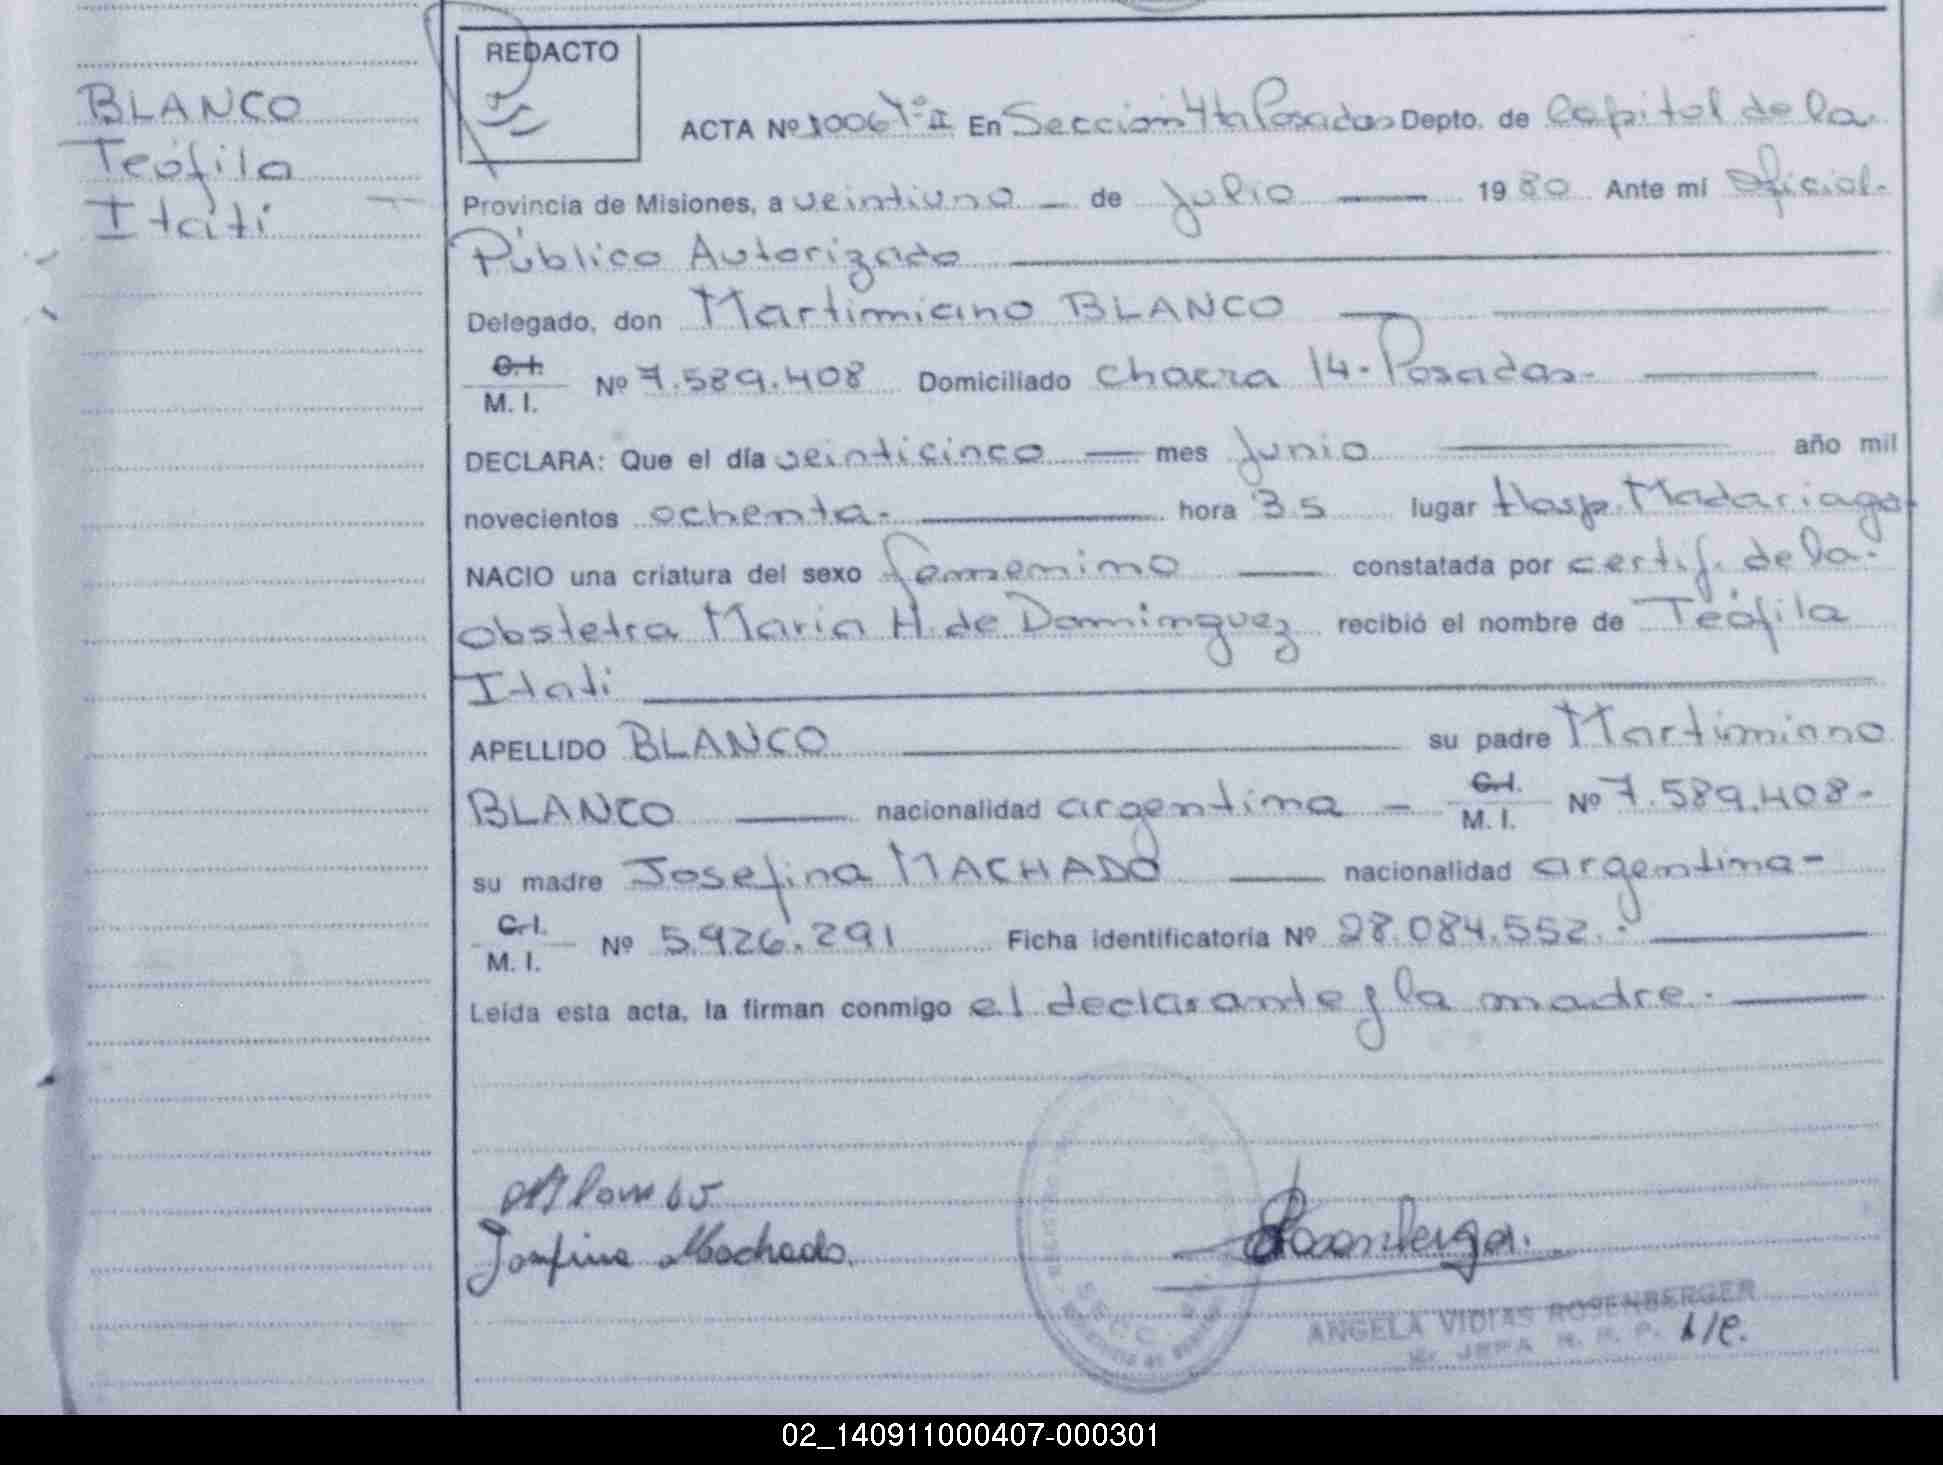 BLANCO
Teófila
Itatí
REDACTO
ACTA Nº 1006 Tº II En Sección 4ta Posadas Depto. de Capital de la
Provincia de Misiones, a veintiuno de Julio 1980 Ante mí Oficial
Público Autorizado
Delegado, don Martimiano BLANCO
C.I.
M. I. Nº 7.589.408 Domiciliado chacra 14-Posadas-
DECLARA: Que el día veinticinco mes Junio año mil
novecientos ochenta- hora 35 lugar Hosp. Madariaga-
NACIO una criatura del sexo femenino constatada por certif. de la
obstetra Maria H. de Dominguez recibió el nombre de Teófila
Itati
APELLIDO BLANCO su padre Martimiano
BLANCO nacionalidad argentina - C.I.
M. I. Nº 7.589.408-
su madre Josefina MACHADO nacionalidad argentina-
C.I.
M. I. Nº 5.926.291 Ficha identificatoria Nº 28.084.552.-
Leída esta acta, la firman conmigo el declarante y la madre.-
Josefina Machado.
Rosenberger.
ANGELA VIDIAS ROSENBERGER
JEFA
02_140911000407-000301